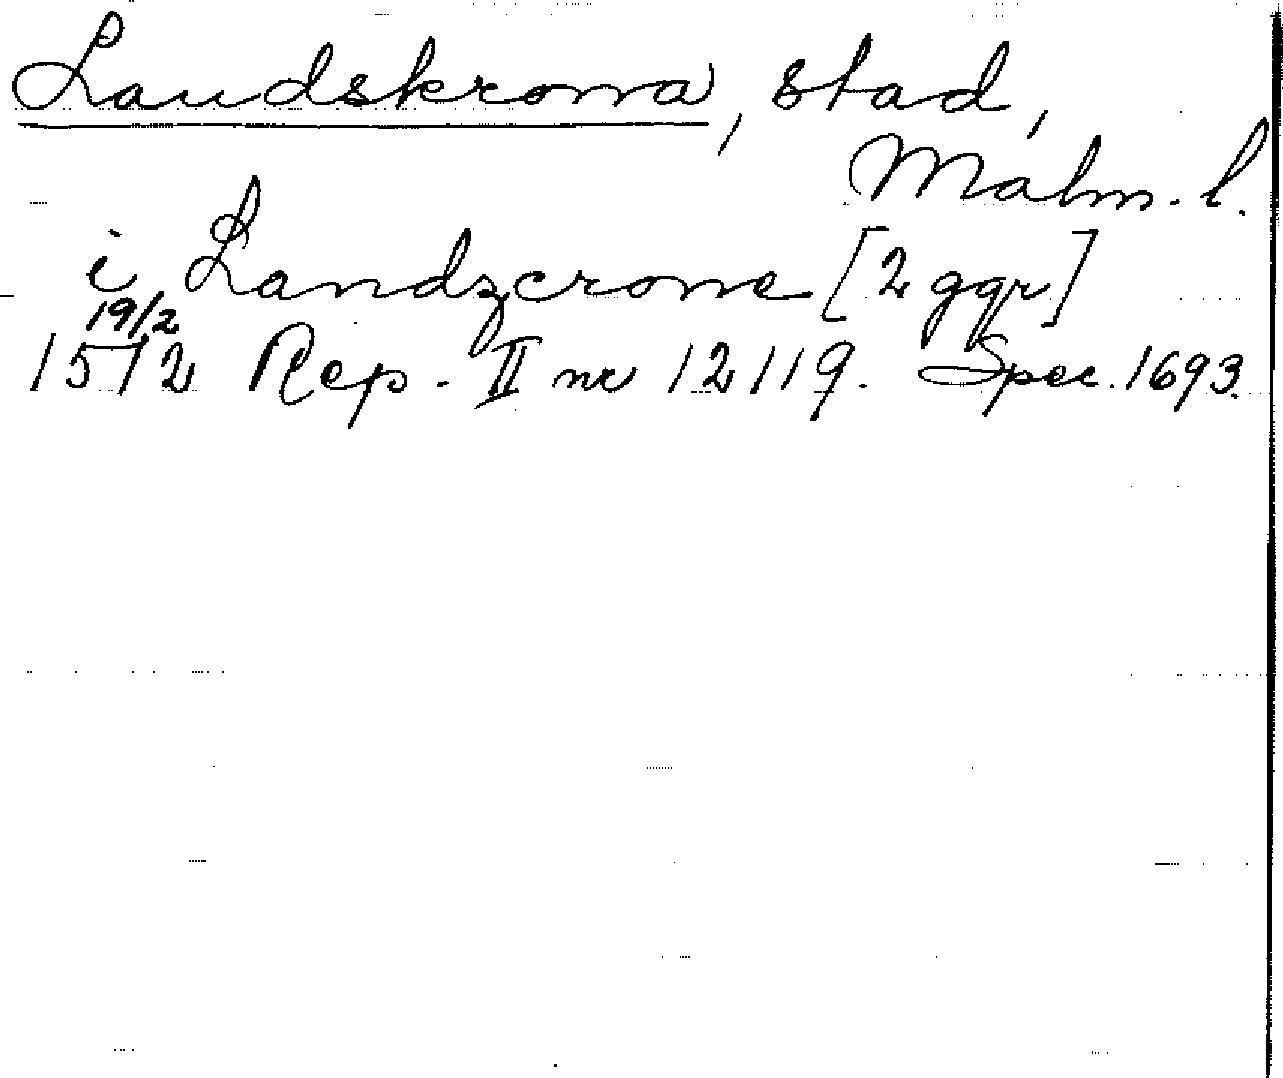 Landskrona, stad,
Malm. l.
i Landzcrone [2 ggr]
19/2
1512 Rep. II nr 12119. Spec. 1693.